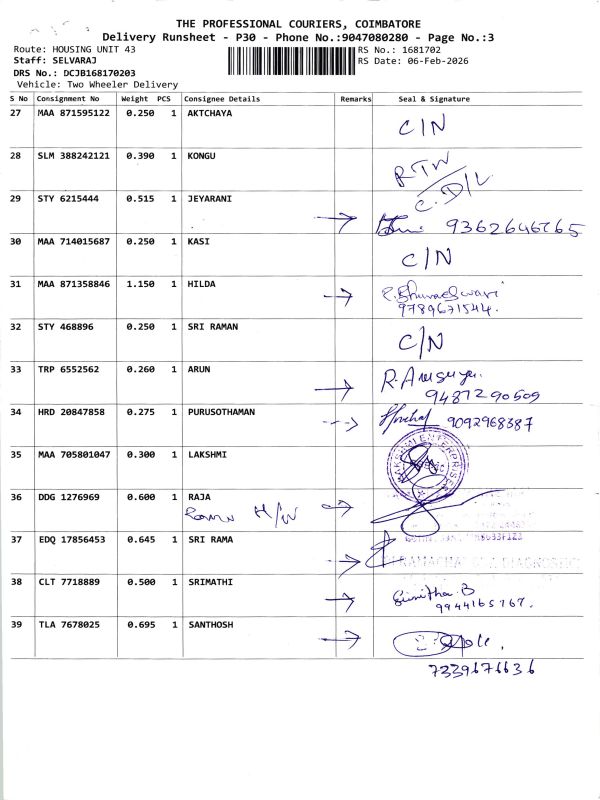 THE PROFESSIONAL COURIERS, COIMBATORE
Delivery Runsheet - P30 - Phone No.:9047080280 - Page No.:3
Route: HOUSING UNIT 43 RS No.: 1681702
Staff: SELVARAJ RS Date: 06-Feb-2026
DRS No.: DCJB168170203
Vehicle: Two Wheeler Delivery
S No Consignment No Weight PCS Consignee Details Remarks Seal & Signature
27 MAA 871595122 0.250 1 AKTCHAYA
C/N
28 SLM 388242121 0.390 1 KONGU
RTW
C.D/L
29 STY 6215444 0.515 1 JEYARANI
9362646765
30 MAA 714015687 0.250 1 KASI
C/N
31 MAA 871358846 1.150 1 HILDA
9789671544.
32 STY 468896 0.250 1 SRI RAMAN
C/N
33 TRP 6552562 0.260 1 ARUN
R. Anusuya.
9487290509
34 HRD 20847858 0.275 1 PURUSOTHAMAN
9092968387
35 MAA 705801047 0.300 1 LAKSHMI
ENTERPRISES
36 DDG 1276969 0.600 1 RAJA
H/W
37 EDQ 17856453 0.645 1 SRI RAMA
38 CLT 7718889 0.500 1 SRIMATHI
Sunitha.B
9944165767.
39 TLA 7678025 0.695 1 SANTHOSH
7339676636